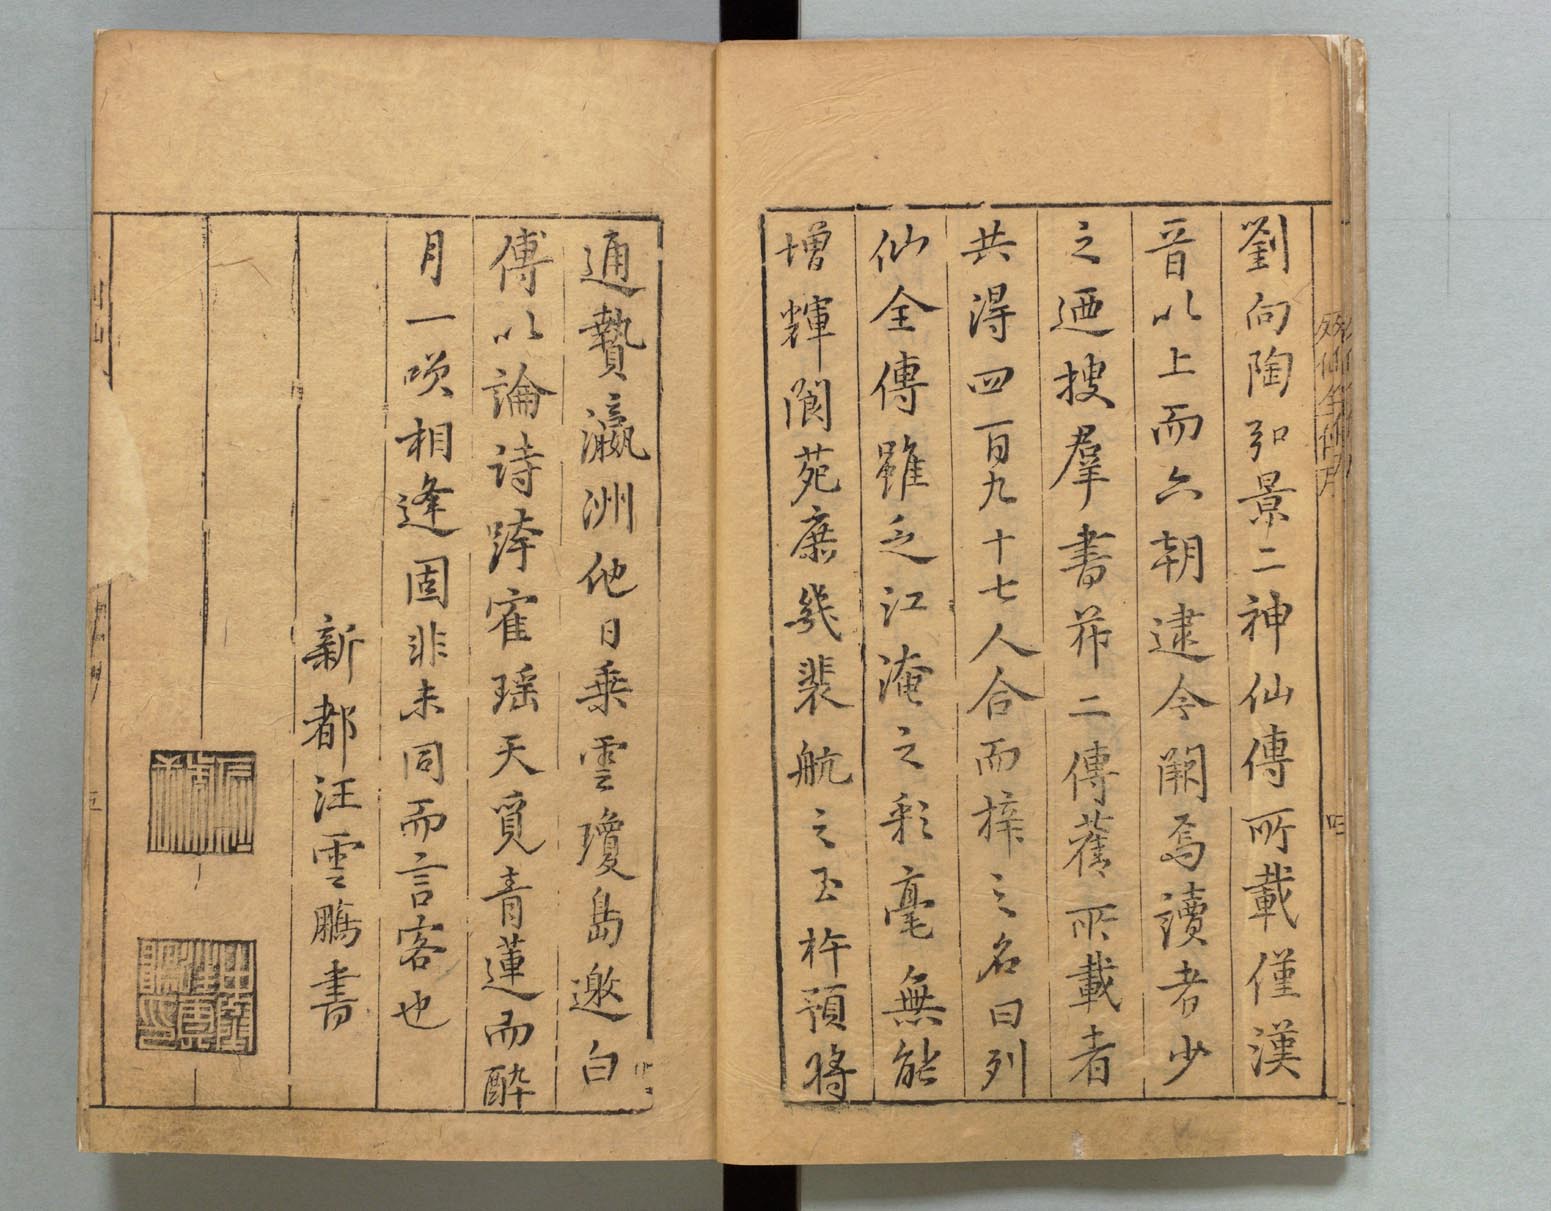 劉向陶弘景二神仙傳所載僅漢
晉以上而六朝逮今闕焉讀者少
之迺搜羣書并二傳舊所載者
共淂四百九十七人合而梓之名曰列
仙全傳雖乏江淹之彩毫無能
增輝閬苑庶幾裴航之玉杵預將
通贄瀛洲他日乘雲瓊島邀白
傅以論詩跨寉瑶天覓青蓮而醉
月一笑相逢固非未同而言客也
新都汪雲鵬書
列仙全傳序
四
五